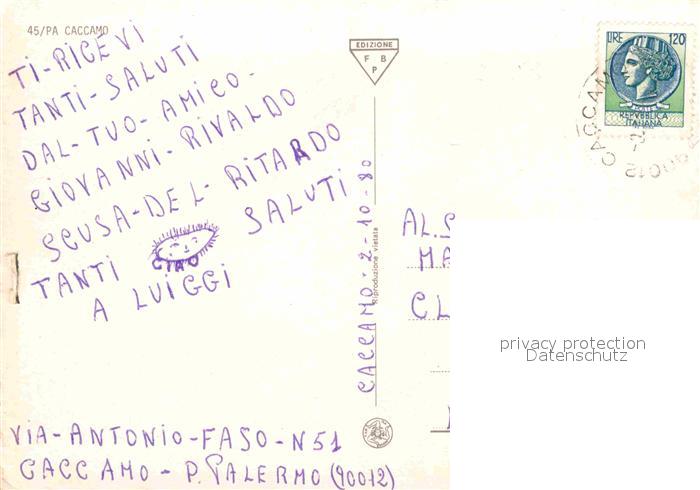 45/PA CACCAMO
TI-RICEVI
TANTI-SALUTI
DAL-TUO-AMICO-
GIOVANNI-RIVALDO
SCUSA-DEL-RITARDO
TANTI SALUTI
CIAO
A LUIGGI
VIA-ANTONIO-FASO-N51
CACCAMO-P.PALERMO(90012)
EDIZIONE
F B
P
CACCAMO-2-10-80
Riproduzione vietata
LIRE 120
REPVBBLICA
ITALIANA
CACCAM
90012
AL.S
MA
CL
privacy protection
Datenschutz